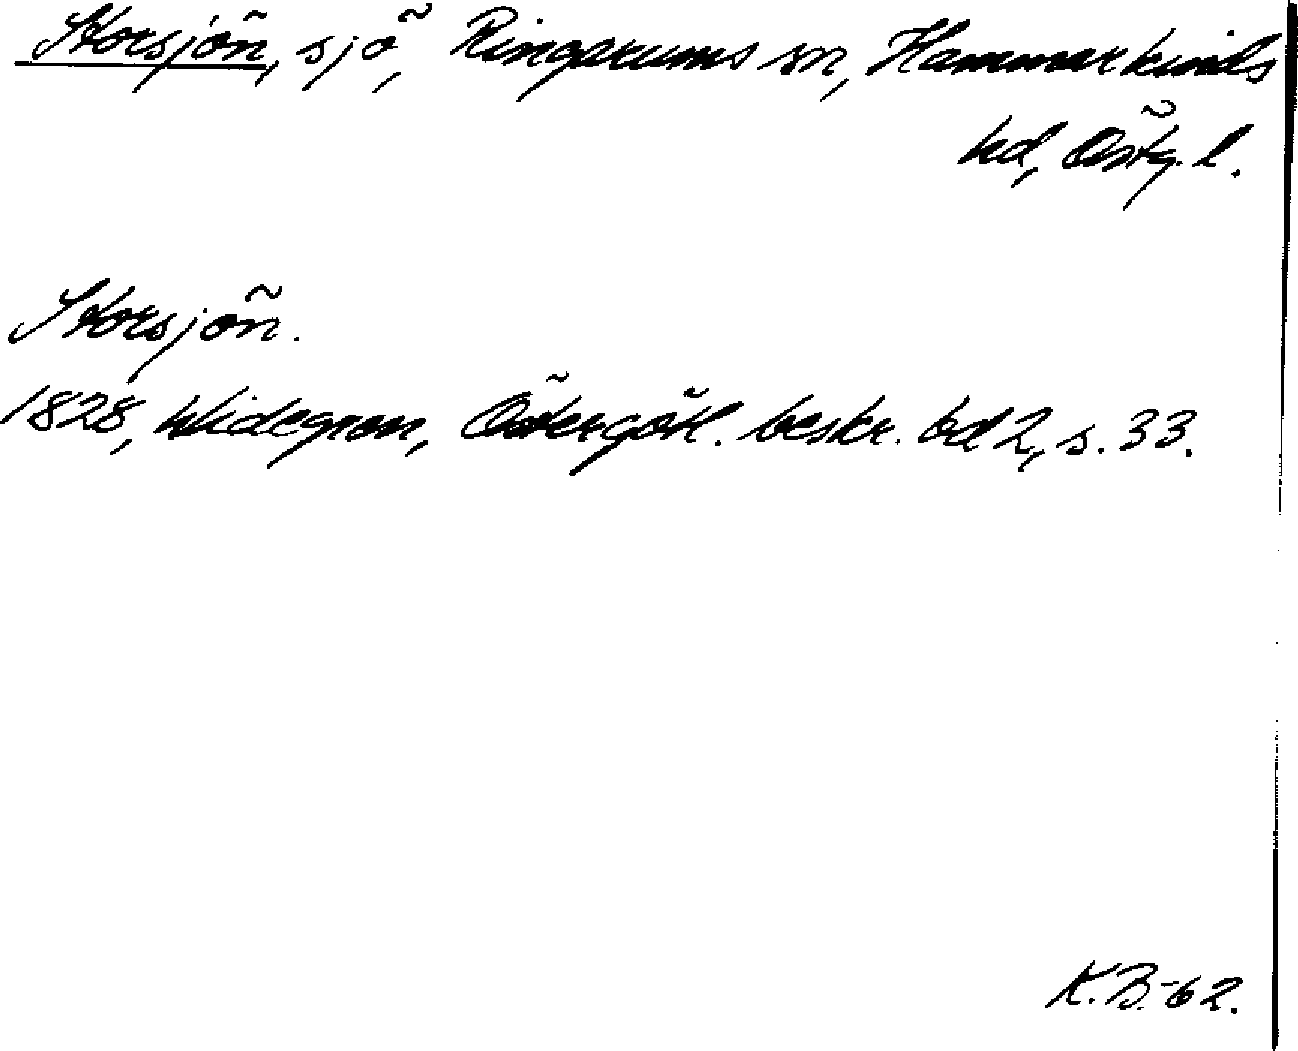 Storsjön, sjö, Ringarums sn, Hammarkinds
hd, Östg. l.
Storsjön.
1828, Widegren, Östergötl. beskr. bd 2, s. 33.
K.B.-62.